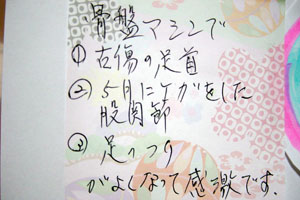 骨盤マシンで
① 古傷の足首
② 5月にケガをした
股関節
③ 足のつり
がよくなって感激です.